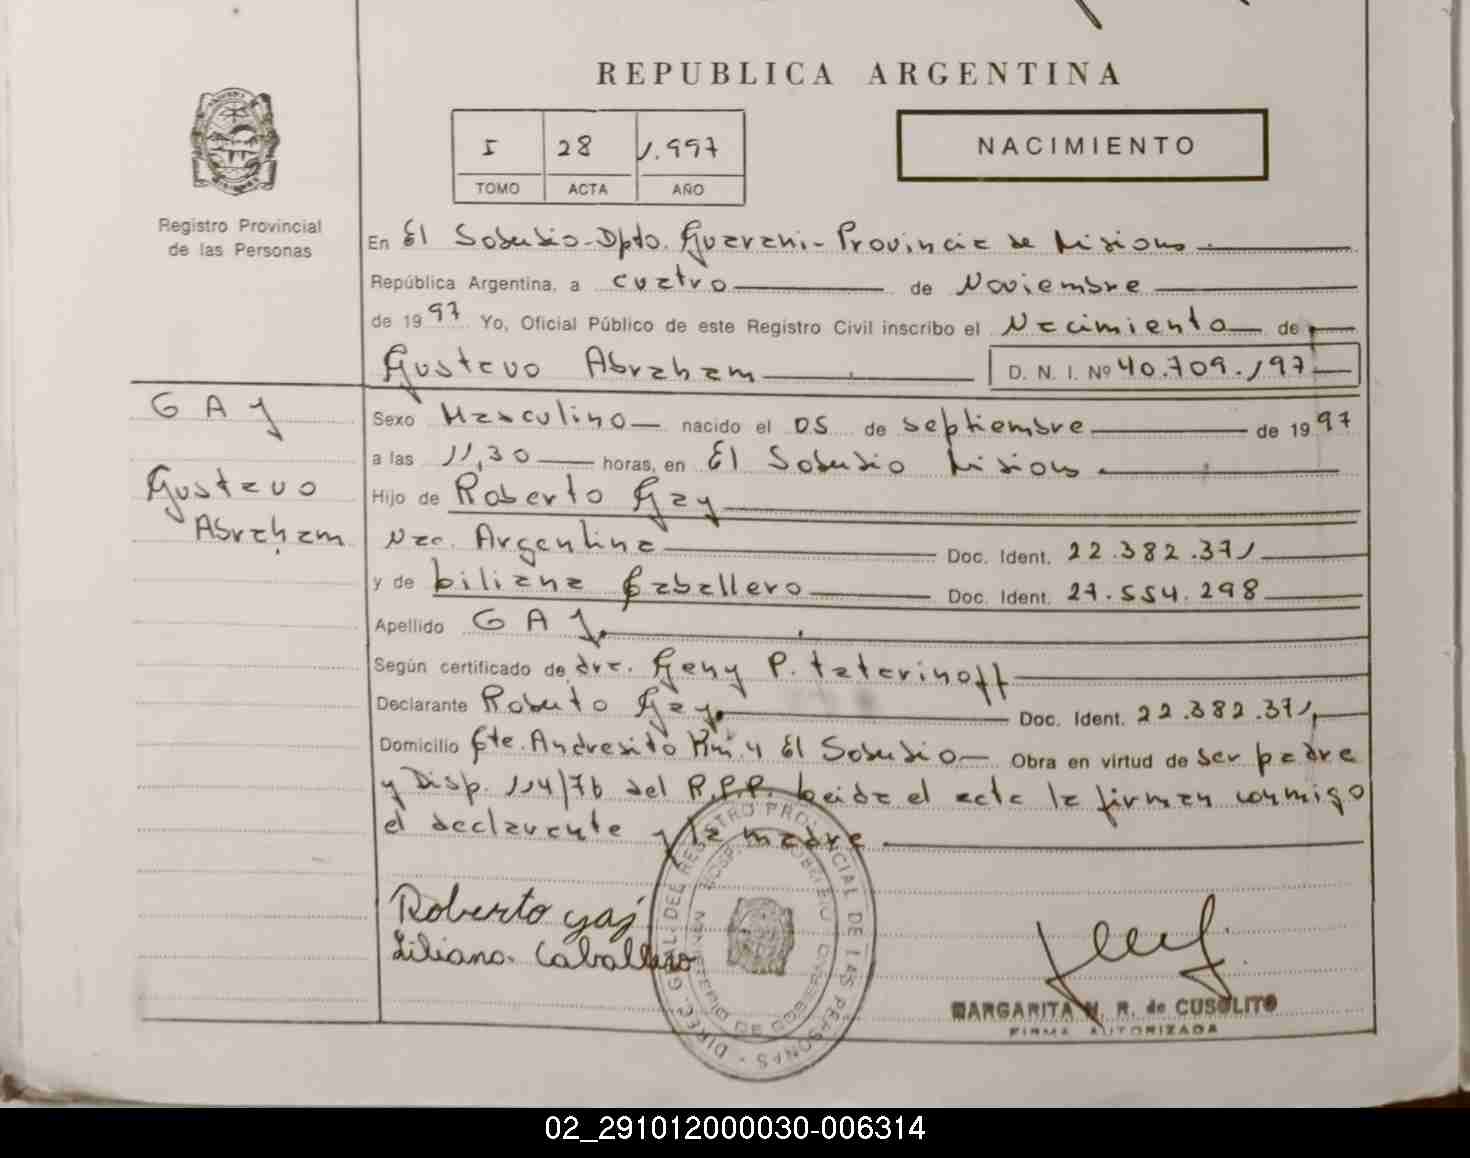 REPUBLICA ARGENTINA
I 28 1.997
TOMO ACTA AÑO
NACIMIENTO
Registro Provincial
de las Personas
En El Soberbio-Dpto. Guarani-Provincia de Misiones
República Argentina, a cuatro de Noviembre
de 1997 Yo, Oficial Público de este Registro Civil inscribo el Nacimiento de
Gustavo Abraham D. N. I. Nº 40.709.197
GAY
Gustavo
Abraham
Sexo Masculino nacido el 05 de septiembre de 1997
a las 11,30 horas, en El Soberbio Misiones
Hijo de Roberto Gay
Nac. Argentina Doc. Ident. 22.382.371
y de Liliana Caballero Doc. Ident. 27.554.298
Apellido GAY
Según certificado de dra. Geny P. Tatarinoff
Declarante Roberto Gay Doc. Ident. 22.382.371
Domicilio Cte. Andresito Km. 4 El Soberbio Obra en virtud de ser padre
y Disp. 114/76 del R.P.P. Leida el acta la firman conmigo
el declarante y la madre
Roberto gay
Liliana Caballero
DIREC. GL. DEL REGISTRO PROVINCIAL DE LAS PERSONAS
MINISTERIO DE GOBIERNO
MARGARITA N. R. de CUSOLITO
FIRMA AUTORIZADA
02_291012000030-006314